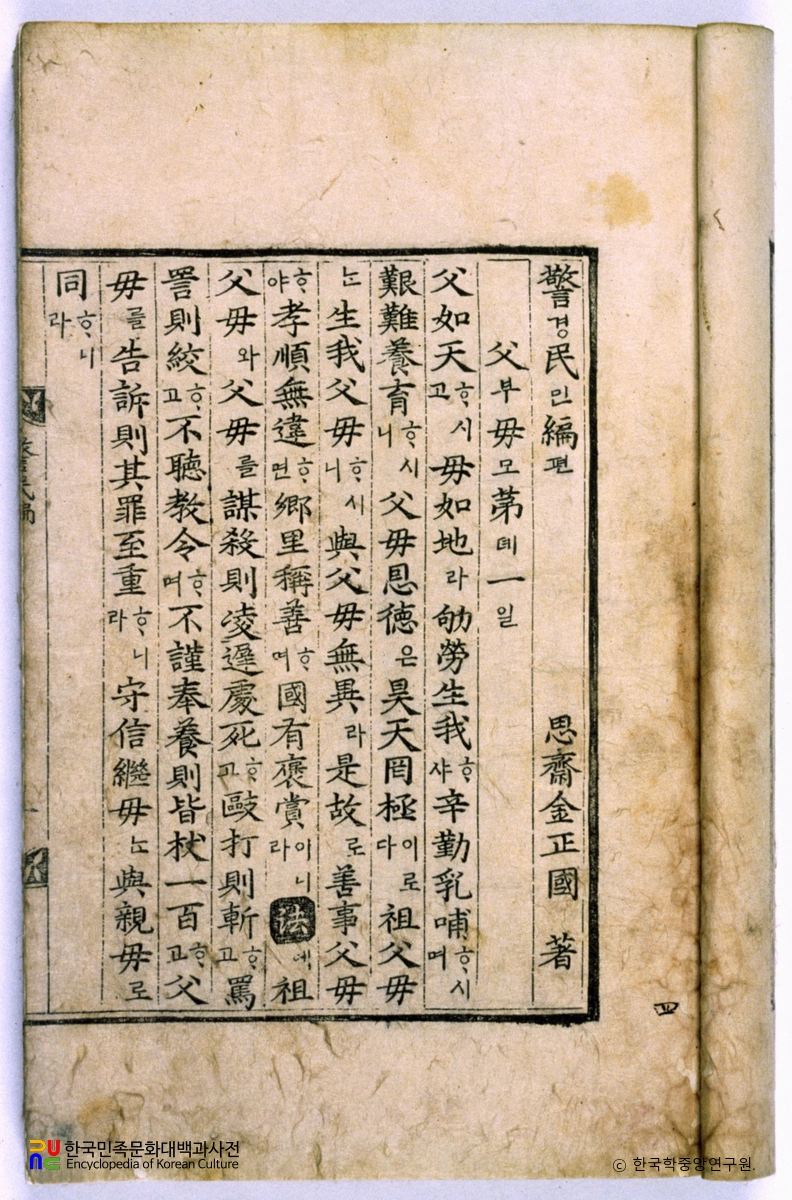 警경民민編편 思齋金正國 著
父부母모第뎨一일
父如天ᄒᆞ시고母如地라劬勞生我ᄒᆞ샤辛勤乳哺ᄒᆞ시며
艱難養育ᄒᆞ시니父母恩德은昊天罔極이로다祖父母
ᄂᆞᆫ生我父母ᄒᆞ시니與父母無異라是故로善事父母
ᄒᆞ야孝順無違ᄒᆞ면鄕里稱善ᄒᆞ며國有褒賞이니라法에祖
父母와父母를謀殺則凌遲處死ᄒᆞ고毆打則斬ᄒᆞ고罵
詈則絞ᄒᆞ고不聽敎令ᄒᆞ며不謹奉養則皆杖一百ᄒᆞ고父
母를告訴則其罪至重ᄒᆞ니라守信繼母ᄂᆞᆫ與親母로
同ᄒᆞ니라
警民編
四
한국민족문화대백과사전
Encyclopedia of Korean Culture
© 한국학중앙연구원.